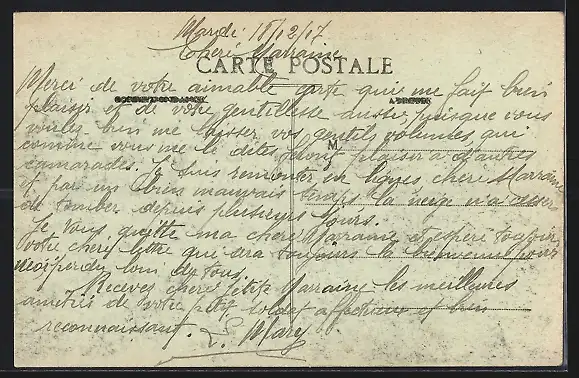 Mardi 18/12/17
Chere Marraine
CARTE POSTALE
Merci de votre aimable carte qui me fait bien
CORRESPONDANCE
ADRESSE
plaisir et de votre gentillesse aussi, puisque vous
voulez bien me laisser vos gentils volumes, qui
M
comme vous me le dites feront plaisir a d'autres
camarades. Je suis remonter en lignes chere Marraine
et par un bien mauvais temps la neige n'a cesser
de tomber depuis plusieurs jours.
Je vous quitte ma chere Marraine et espere toujours
votre chere lettre qui sera toujours la bienvenue pour
moi perdu loin de tous.
Recevez chere petite Marraine les meilleures
amitiés de votre petit soldat affectueux et bien
reconnaissant. L. Mary